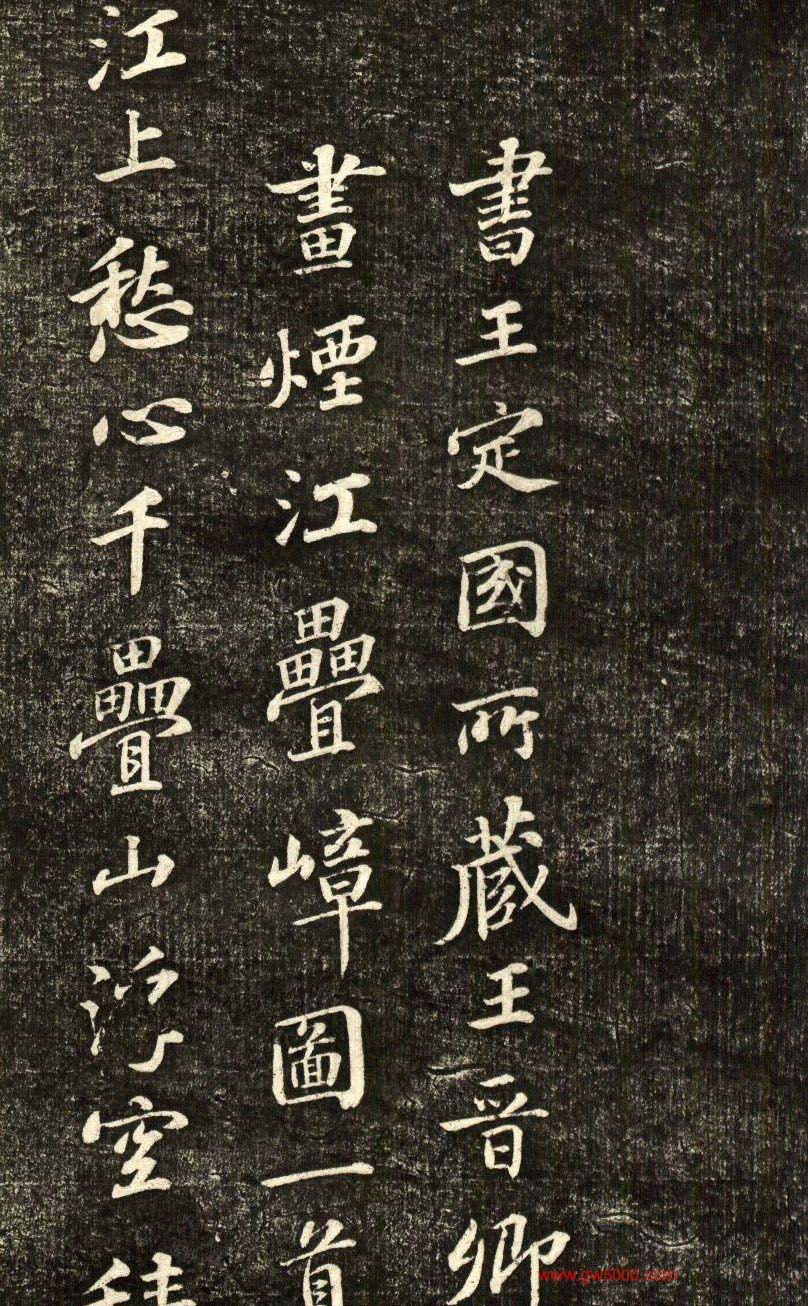 書王定國所蔵王晉卿
畫煙江疊嶂圖一首
江上愁心千疊山浮空積
www.gw6000.com